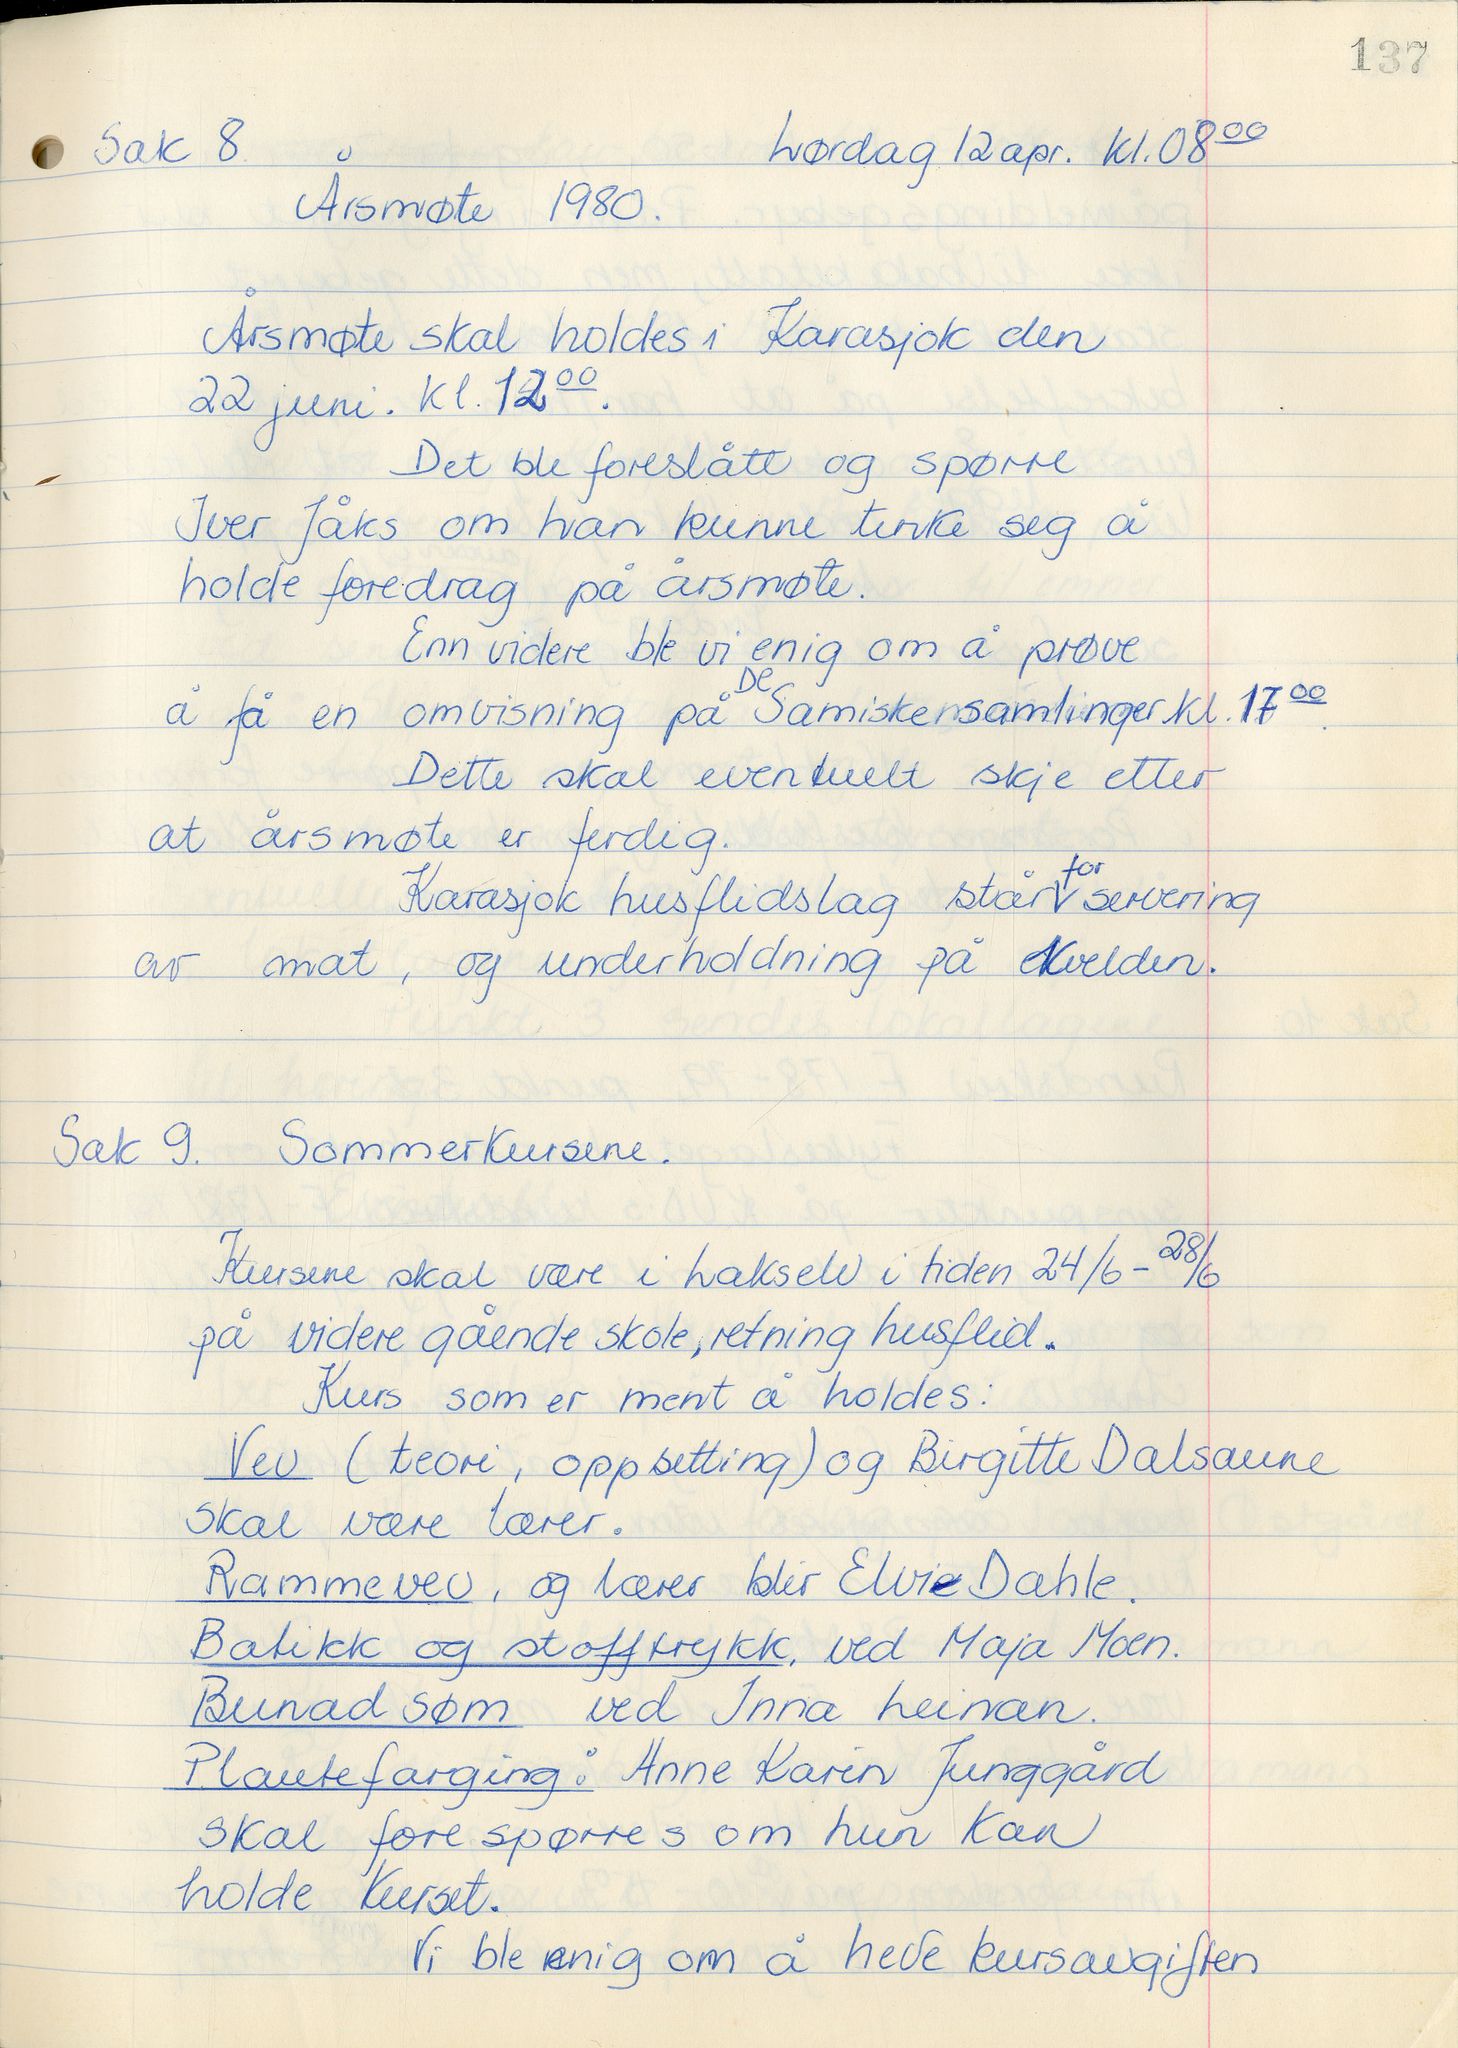 137
Sak 8 Lørdag 12 apr. kl. 08 00
Årsmøte 1980.
Årsmøte skal holdes i Karasjok den
22 juni. kl. 12 00.
Det ble foreslått og spørre
Iver Jåks om han kunne tenke seg å
holde foredrag på årsmøte.
Enn videre ble vi enig om å prøve
å få en omvisning på De Samiske samlinger kl. 17 00.
Dette skal eventuelt skje etter
at årsmøte er ferdig.
Karasjok husflidslag står for servering
av mat, og underholdning på kvelden.
Sak 9. Sommerkursene.
Kursene skal være i Lakselv i tiden 24/6 - 28/6
på videre gående skole, retning husflid.
Kurs som er ment å holdes:
Vev (teori, oppsetting) og Birgitte Dalsaune
skal være lærer.
Rammevev, og lærer blir Elvie Dahle.
Batikk og stofftrykk, ved Maja Moen.
Bunad søm ved Inna Leinan.
Plantefarging: Anne Karin Junggård
skal fore spørres om hun kan
holde kurset.
Vi ble enig om å heve kursavgiften